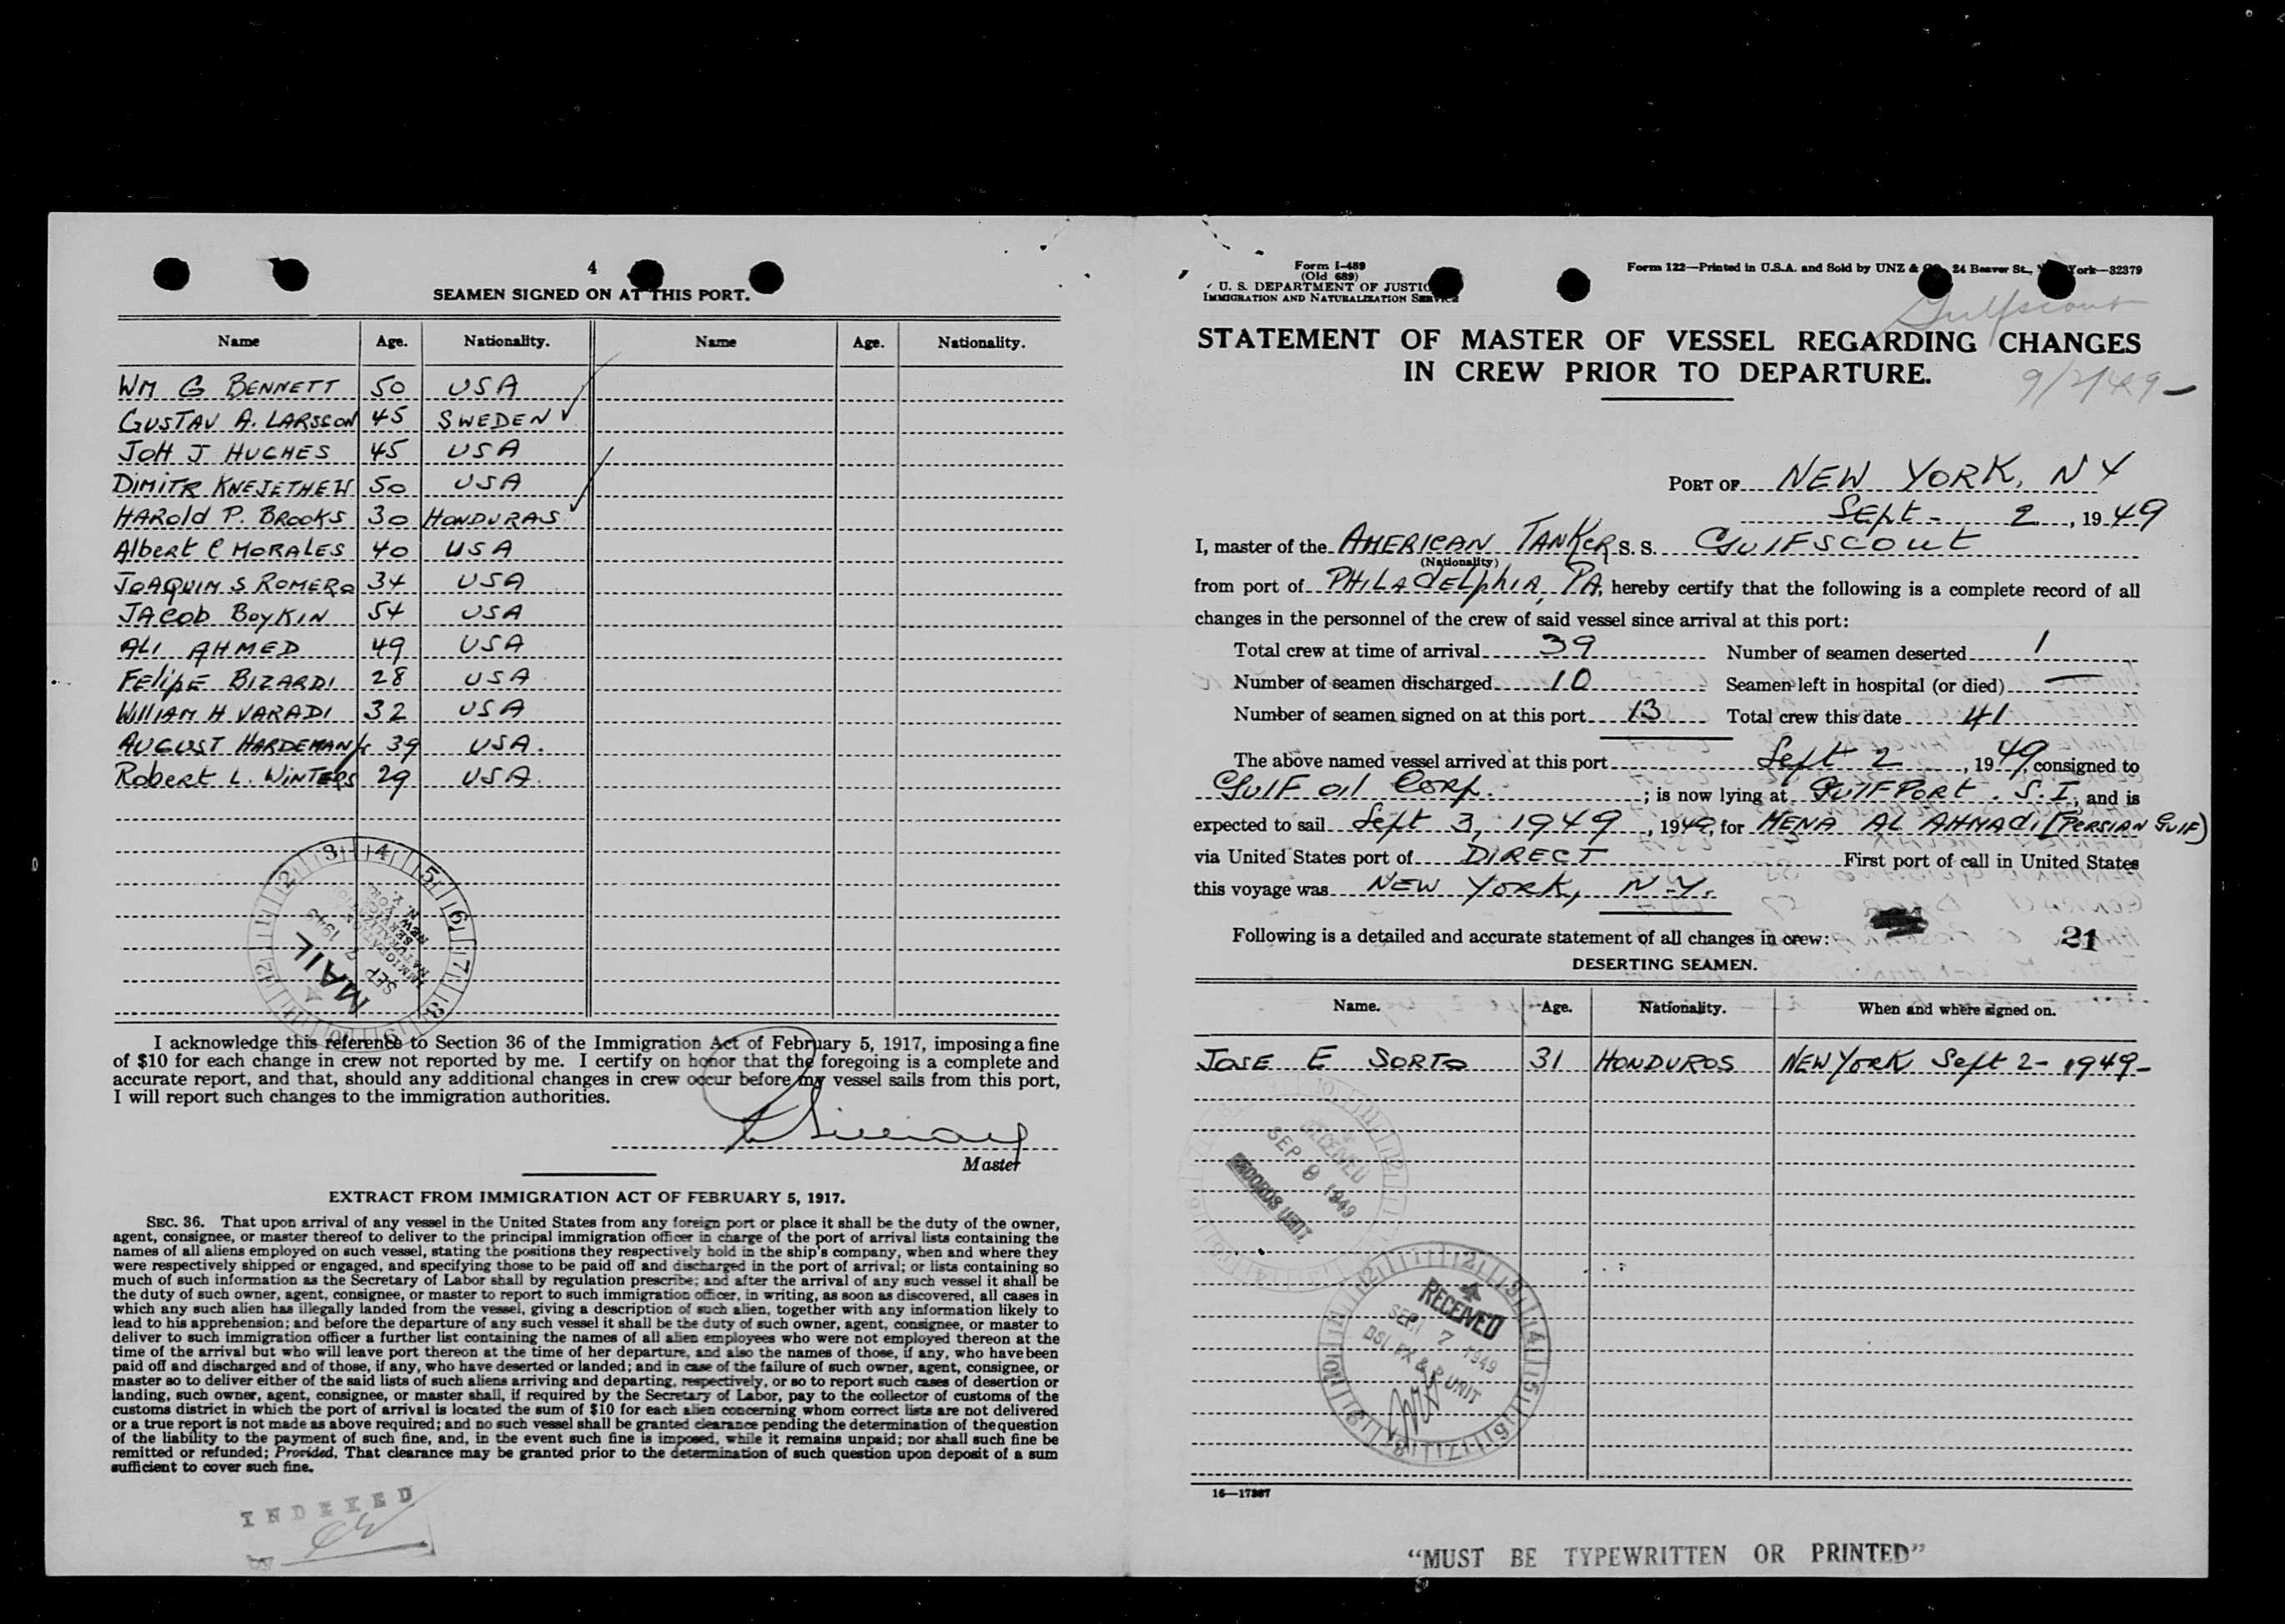 4
SEAMEN SIGNED ON AT THIS PORT.
Name Age. Nationality. Name Age. Nationality.
WM G BENNETT 50 USA
GUSTAV A. LARSSON 45 SWEDEN ✓
JOH J HUGHES 45 USA
DIMITR KNEJETHEW 50 USA
HAROLD P. BROOKS 30 HONDURAS ✓
Albert C MORALES 40 USA
JOAQUIM S ROMERO 34 USA
JACOB BOYKIN 54 USA
ALI AHMED 49 USA
FELIPE BIZARDI 28 USA
WILLIAM H VARADI 32 USA
AUGUST HARDEMAN Jr 39 USA.
Robert L. WINTERS 29 USA.
MAIL
SEP 2 1949
IMMIGRATION
NATURALIZATION
SERVICE
NEW YORK, N. Y.
I acknowledge this reference to Section 36 of the Immigration Act of February 5, 1917, imposing a fine
of $10 for each change in crew not reported by me. I certify on honor that the foregoing is a complete and
accurate report, and that, should any additional changes in crew occur before my vessel sails from this port,
I will report such changes to the immigration authorities.
Master
EXTRACT FROM IMMIGRATION ACT OF FEBRUARY 5, 1917.
SEC. 36. That upon arrival of any vessel in the United States from any foreign port or place it shall be the duty of the owner,
agent, consignee, or master thereof to deliver to the principal immigration officer in charge of the port of arrival lists containing the
names of all aliens employed on such vessel, stating the positions they respectively hold in the ship's company, when and where they
were respectively shipped or engaged, and specifying those to be paid off and discharged in the port of arrival; or lists containing so
much of such information as the Secretary of Labor shall by regulation prescribe; and after the arrival of any such vessel it shall be
the duty of such owner, agent, consignee, or master to report to such immigration officer, in writing, as soon as discovered, all cases in
which any such alien has illegally landed from the vessel, giving a description of such alien, together with any information likely to
lead to his apprehension; and before the departure of any such vessel it shall be the duty of such owner, agent, consignee, or master to
deliver to such immigration officer a further list containing the names of all alien employees who were not employed thereon at the
time of the arrival but who will leave port thereon at the time of her departure, and also the names of those, if any, who have been
paid off and discharged and of those, if any, who have deserted or landed; and in case of the failure of such owner, agent, consignee, or
master so to deliver either of the said lists of such aliens arriving and departing, respectively, or so to report such cases of desertion or
landing, such owner, agent, consignee, or master shall, if required by the Secretary of Labor, pay to the collector of customs of the
customs district in which the port of arrival is located the sum of $10 for each alien concerning whom correct lists are not delivered
or a true report is not made as above required; and no such vessel shall be granted clearance pending the determination of the question
of the liability to the payment of such fine, and, in the event such fine is imposed, while it remains unpaid; nor shall such fine be
remitted or refunded; Provided, That clearance may be granted prior to the determination of such question upon deposit of a sum
sufficient to cover such fine.
INDEXED
Form I-489
(Old 689)
U. S. DEPARTMENT OF JUSTICE
IMMIGRATION AND NATURALIZATION SERVICE
Form 122—Printed in U.S.A. and Sold by UNZ & CO., 24 Beaver St., New York—32379
Gulfscout
STATEMENT OF MASTER OF VESSEL REGARDING CHANGES
IN CREW PRIOR TO DEPARTURE.
9/2/49-
PORT OF NEW YORK, NY
Sept - 2, 1949
I, master of the AMERICAN TANKER S. S. GULFSCOUT
(Nationality)
from port of PHILADELPHIA, PA, hereby certify that the following is a complete record of all
changes in the personnel of the crew of said vessel since arrival at this port:
Total crew at time of arrival 39 Number of seamen deserted 1
Number of seamen discharged 10 Seamen left in hospital (or died) —
Number of seamen signed on at this port 13 Total crew this date 41
The above named vessel arrived at this port Sept 2, 1949, consigned to
GULF OIL CORP. ; is now lying at GULFPORT. S.I., and is
expected to sail Sept 3, 1949, 1949, for MENA AL AHMADI (PERSIAN GULF)
via United States port of DIRECT First port of call in United States
this voyage was NEW YORK, N.Y.
Following is a detailed and accurate statement of all changes in crew: 21
DESERTING SEAMEN.
Name. Age. Nationality. When and where signed on.
JOSE E SORTO 31 HONDUROS NEW YORK Sept 2- 1949-
RECEIVED
SEP 9 1949
RECORDS UNIT
RECEIVED
SEP 7 1949
DSI, PX & P UNIT
16—17387
"MUST BE TYPEWRITTEN OR PRINTED"